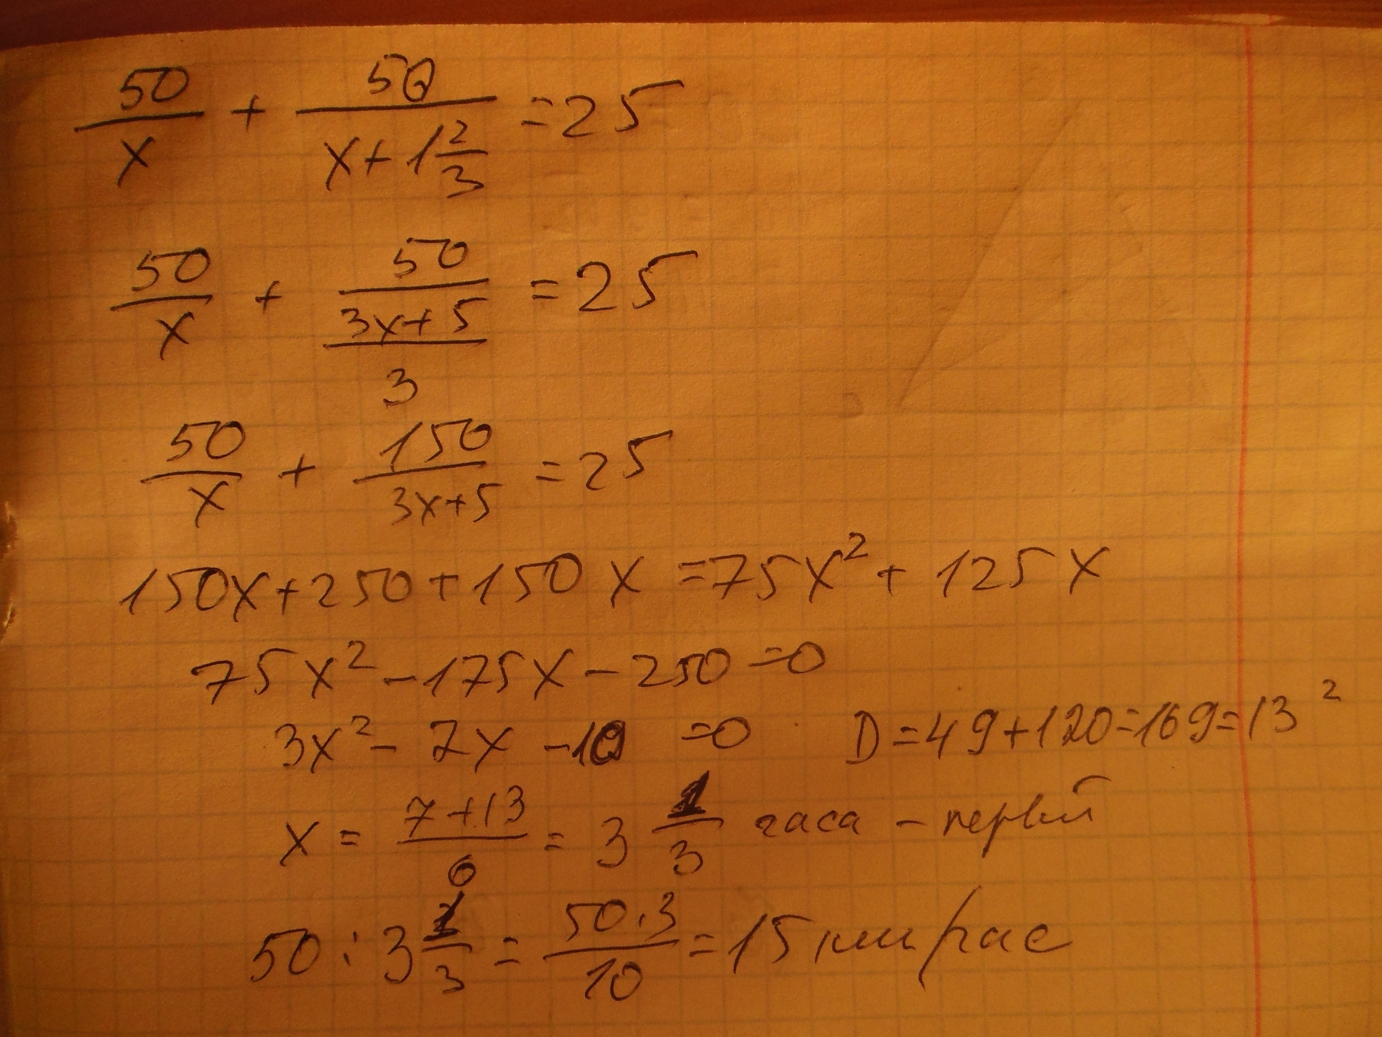 50/x + 50/(x + 1 2/3) = 25
50/x + 50/((3x+5)/3) = 25
50/x + 150/(3x+5) = 25
150x + 250 + 150x = 75x² + 125x
75x² - 175x - 250 = 0
3x² - 7x - 10 = 0 D = 49 + 120 = 169 = 13²
x = (7+13)/6 = 3 1/3 часа - первый
50 : 3 1/3 = (50·3)/10 = 15 км/час